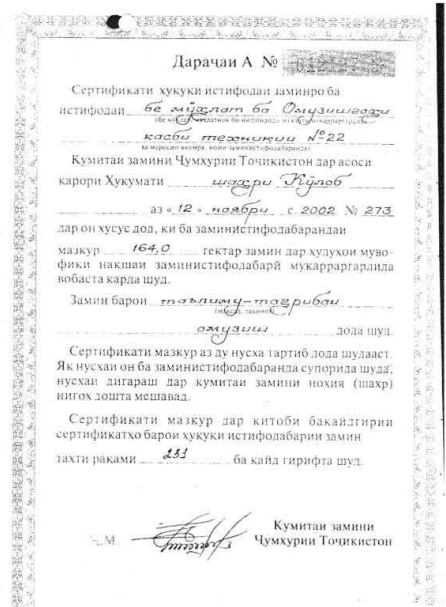 Дараҷаи А №
Сертификати ҳуқуқи истифодаи заминро ба
истифодаи бе мӯҳлат ба Омузишгоҳи
касби техникии №22
Кумитаи замини Ҷумҳурии Тоҷикистон дар асоси
қарори Ҳукумати шаҳри Кӯлоб
аз « 12 » ноябри с. 2002 № 273
дар он хусус дод, ки ба заминистифодабарандаи
мазкур 164,0 гектар замин дар ҳудуҳои муво-
фиқи нақшаи заминистифодабарӣ муқарраргардида
вобаста карда шуд.
Замин барои таълиму-таҷрибаи
(мақсад, таъинот)
омузиш дода шуд.
Сертификати мазкур аз ду нусха тартиб дода шудааст.
Як нусхаи он ба заминистифодабаранда супорида шуда,
нусхаи дигараш дар кумитаи замини ноҳия (шаҳр)
нигоҳ дошта мешавад.
Сертификати мазкур дар китоби бақайдгирии
сертификатҳо барои ҳуқуқи истифодабарии замин
таҳти рақами 233 ба қайд гирифта шуд.
Ҷ.М.
Кумитаи замини
Ҷумҳурии Тоҷикистон